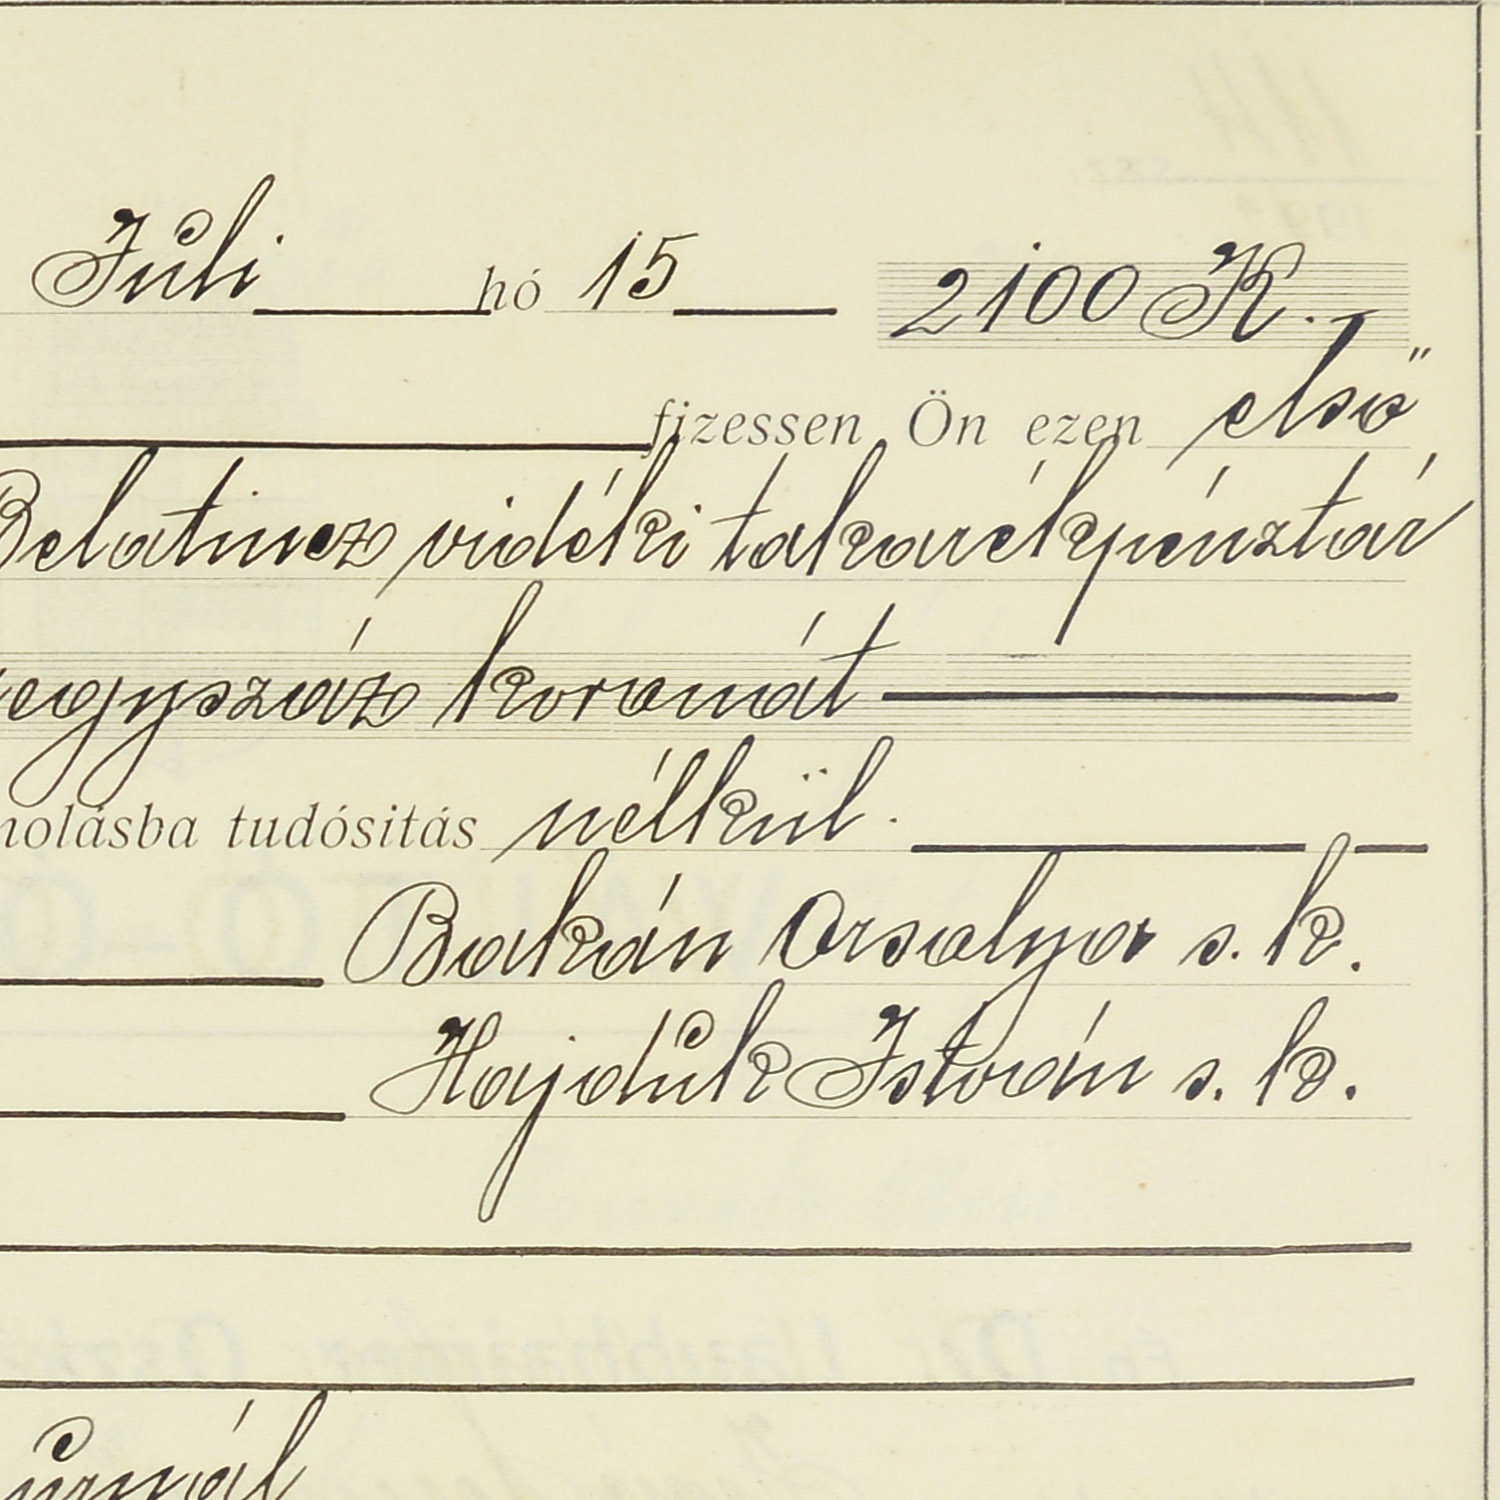 Juli hó 15 2100 K.
fizessen Ön ezen első
Belatincz vidéki takarékpénztár
egyszáz koronát
tudósitás nélkül.
Bakán Orsolya s. k.
Hajduk István s. k.